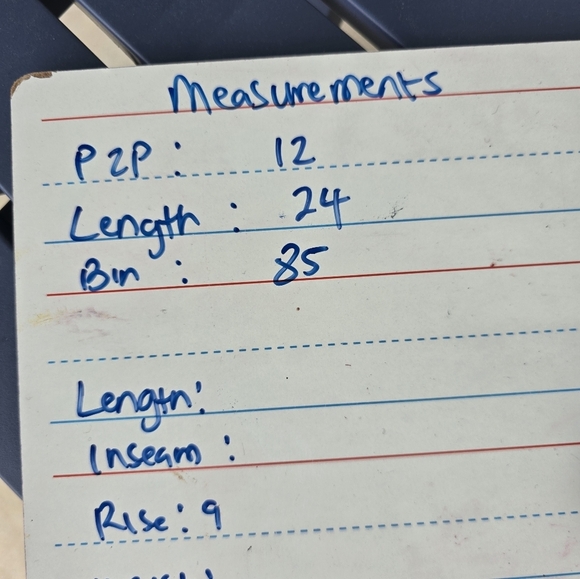 Measurements
P2P: 12
Length: 24
Bin: 85
Length:
Inseam:
Rise: 9